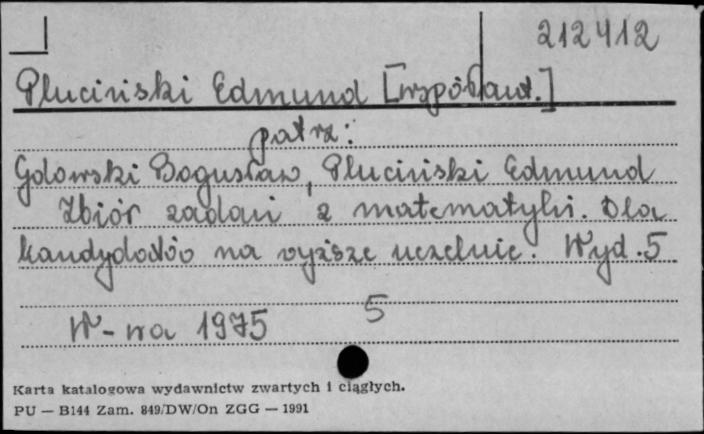 212412
Pluciński Edmund [współaut.]
patrz:
Gdowski Bogusław, Pluciński Edmund
Zbiór zadań z matematyki. Dla
kandydatów na wyższe uczelnie. Wyd. 5
W-wa 1975 5
Karta katalogowa wydawnictw zwartych i ciągłych.
PU — B144 Zam. 849/DW/On ZGG — 1991